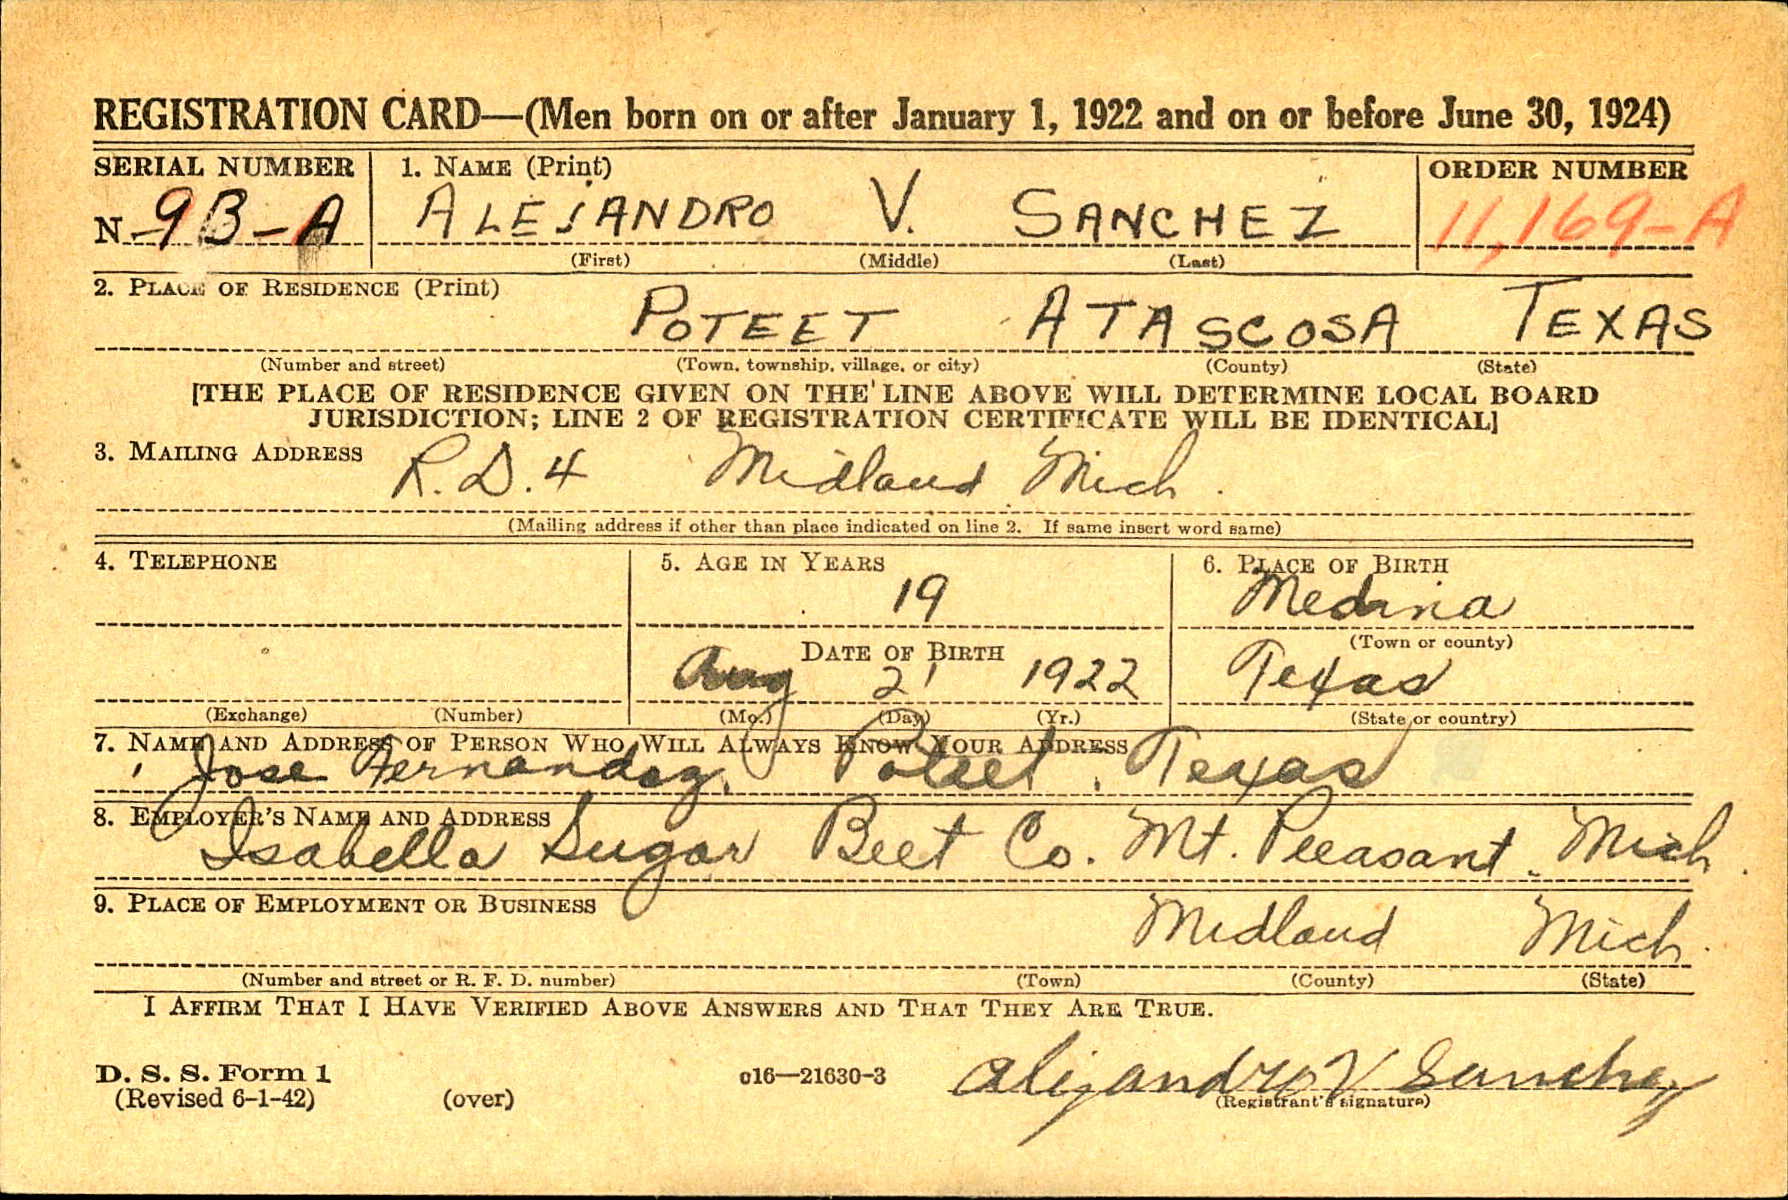 REGISTRATION CARD—(Men born on or after January 1, 1922 and on or before June 30, 1924)
SERIAL NUMBER 1. NAME (Print) ORDER NUMBER
N 9B-A ALEJANDRO V. SANCHEZ 11,169-A
(First) (Middle) (Last)
2. PLACE OF RESIDENCE (Print)
POTEET ATASCOSA TEXAS
(Number and street) (Town, township, village, or city) (County) (State)
[THE PLACE OF RESIDENCE GIVEN ON THE LINE ABOVE WILL DETERMINE LOCAL BOARD
JURISDICTION; LINE 2 OF REGISTRATION CERTIFICATE WILL BE IDENTICAL]
3. MAILING ADDRESS R.D. 4 Midland Mich.
(Mailing address if other than place indicated on line 2. If same insert word same)
4. TELEPHONE 5. AGE IN YEARS 6. PLACE OF BIRTH
19 Medina
DATE OF BIRTH (Town or county)
Aug 21 1922 Texas
(Exchange) (Number) (Mo.) (Day) (Yr.) (State or country)
7. NAME AND ADDRESS OF PERSON WHO WILL ALWAYS KNOW YOUR ADDRESS
Jose Fernandez, Poteet, Texas
8. EMPLOYER'S NAME AND ADDRESS
Isabella Sugar Beet Co. Mt. Pleasant, Mich.
9. PLACE OF EMPLOYMENT OR BUSINESS
Midland Mich.
(Number and street or R. F. D. number) (Town) (County) (State)
I AFFIRM THAT I HAVE VERIFIED ABOVE ANSWERS AND THAT THEY ARE TRUE.
D. S. S. Form 1 c16—21630-3 Alijandro V Sanchez
(Revised 6-1-42) (over) (Registrant's signature)